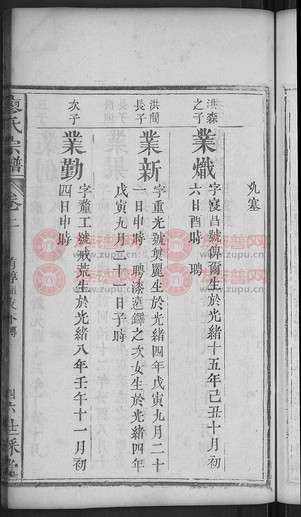 丸塞
洪森之子
業熾
字寖昌號俾爾生於光緒十五年己丑十月初
六日酉時 聘
洪簡長子
業新
字重光號奐麗生於光緒四年戊寅九月二十
一日申時 聘漆選鐸之次女生於光緒四年
戊寅九月二十一日子時
次子
業勤
字釐工號戒荒生於光緒八年壬午十一月初
四日申時
廖氏宗譜
卷二
四六
族譜网
www.zupu.cn